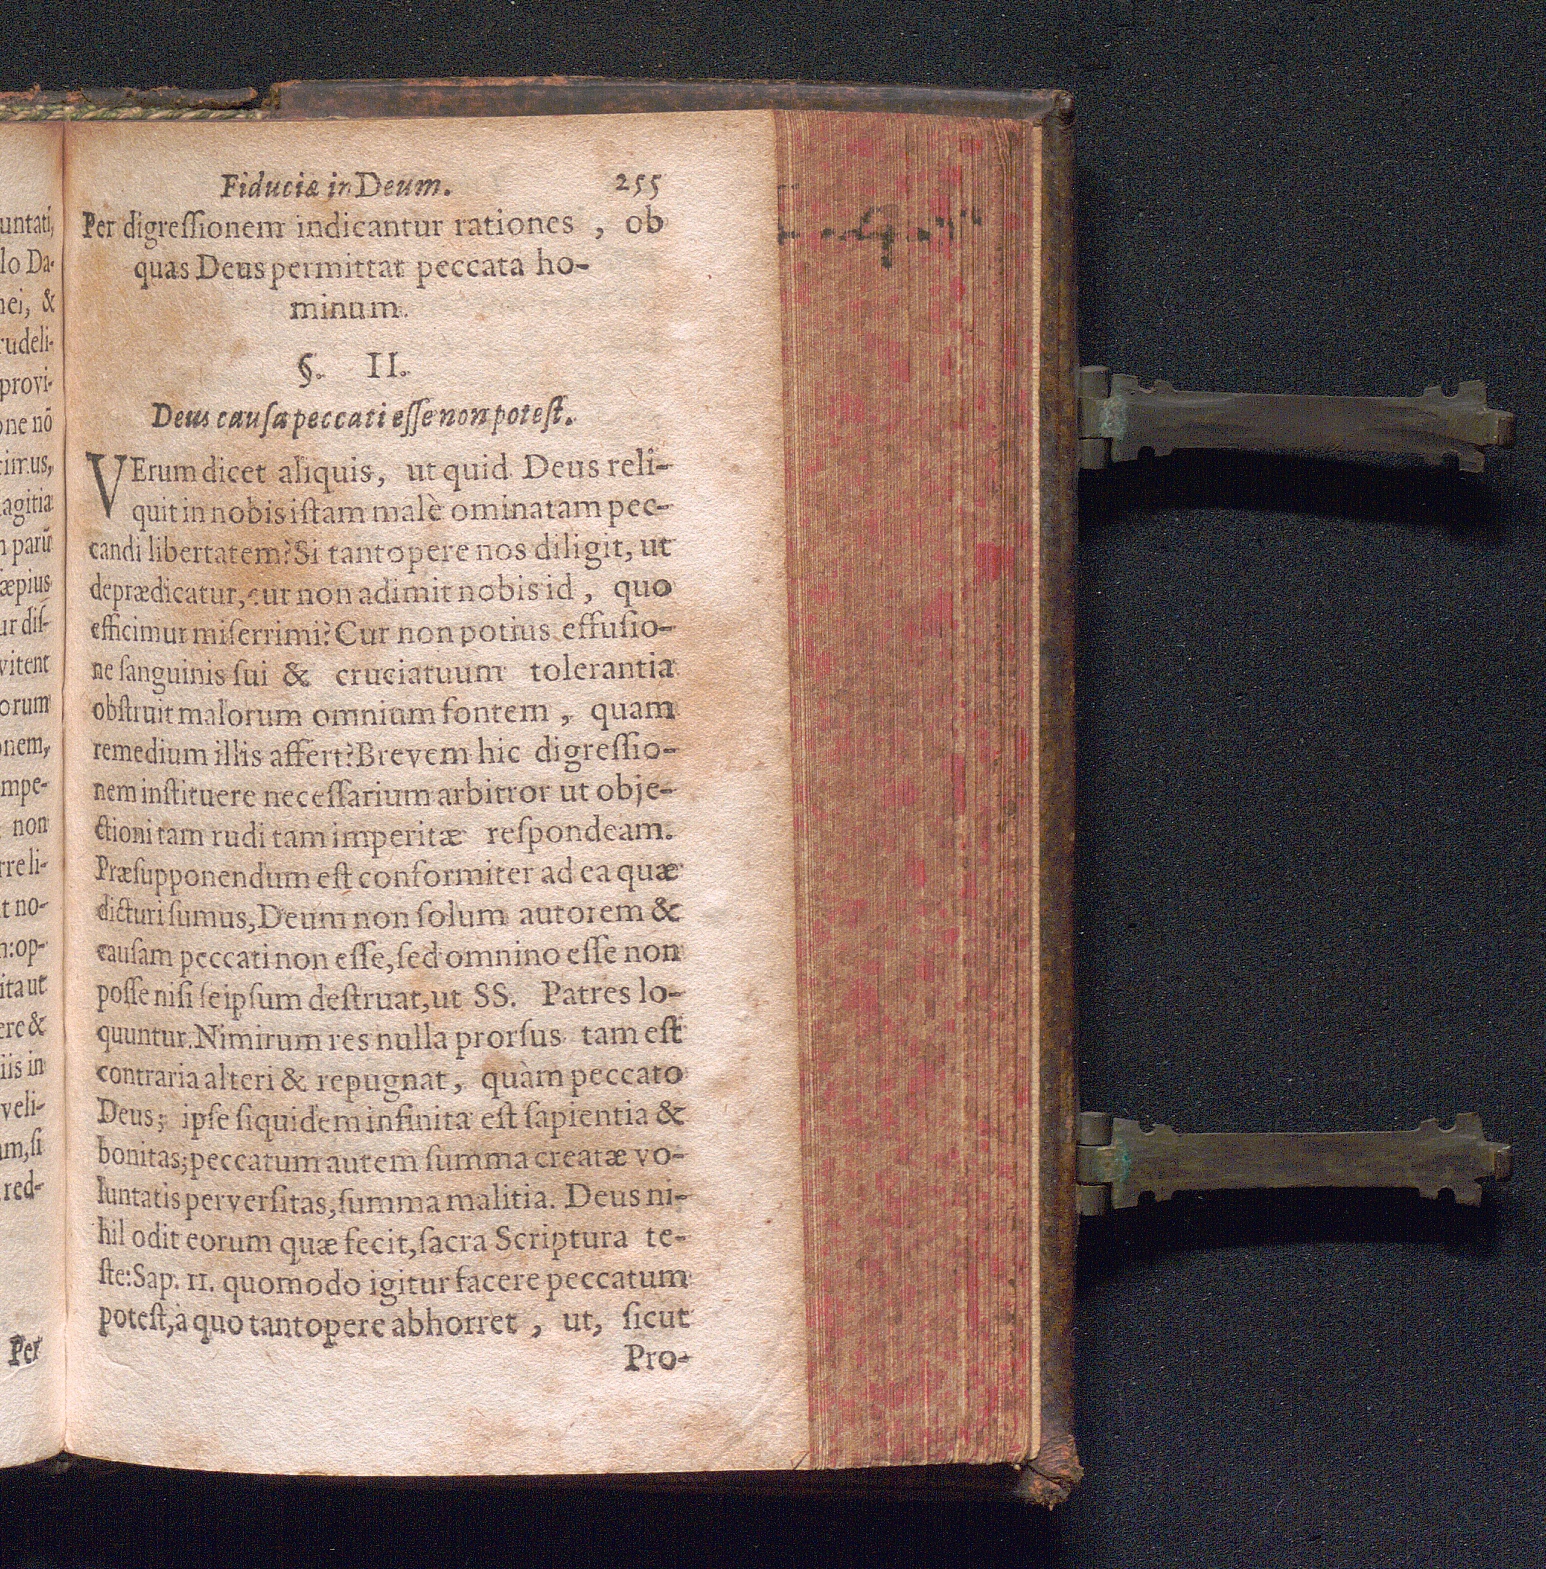 untati,
lo Da-
nei, &
rudeli-
provi-
one nõ
imus,
agitia
n parũ
æpius
ur diſ-
vitent
orum
onem,
mpe-
non
rreli-
t no-
n:op-
ita ut
ere &
iis in
veli-
am,ſi
red-
Per
Fiduciæ in Deum. 255
Per digreſſionem indicantur rationes , ob
quas Deus permittat peccata ho-
minum.
§. II.
Deus cauſa peccati eſſe non poteſt.
VErum dicet aliquis, ut quid Deus reli-
quit in nobis iſtam malè ominatam pec-
candi libertatem? Si tantopere nos diligit, ut
deprædicatur, cur non adimit nobis id , quo
efficimur miſerrimi? Cur non potius effuſio-
ne ſanguinis ſui & cruciatuum tolerantia
obſtruit malorum omnium fontem , quam
remedium illis affert? Brevem hic digreſſio-
nem inſtituere neceſſarium arbitror ut obje-
ctioni tam rudi tam imperitæ reſpondeam.
Præſupponendum eſt conformiter ad ea quæ
dicturi ſumus, Deum non ſolum autorem &
cauſam peccati non eſſe, ſed omnino eſſe non
poſſe niſi ſeipſum deſtruat, ut SS. Patres lo-
quuntur. Nimirum res nulla prorſus tam eſt
contraria alteri & repugnat, quàm peccato
Deus; ipſe ſiquidem infinita eſt ſapientia &
bonitas; peccatum autem ſumma creatæ vo-
luntatis perverſitas, ſumma malitia. Deus ni-
hil odit eorum quæ fecit, ſacra Scriptura te-
ſte: Sap. 11. quomodo igitur facere peccatum
poteſt, à quo tantopere abhorret , ut, ſicut
Pro-